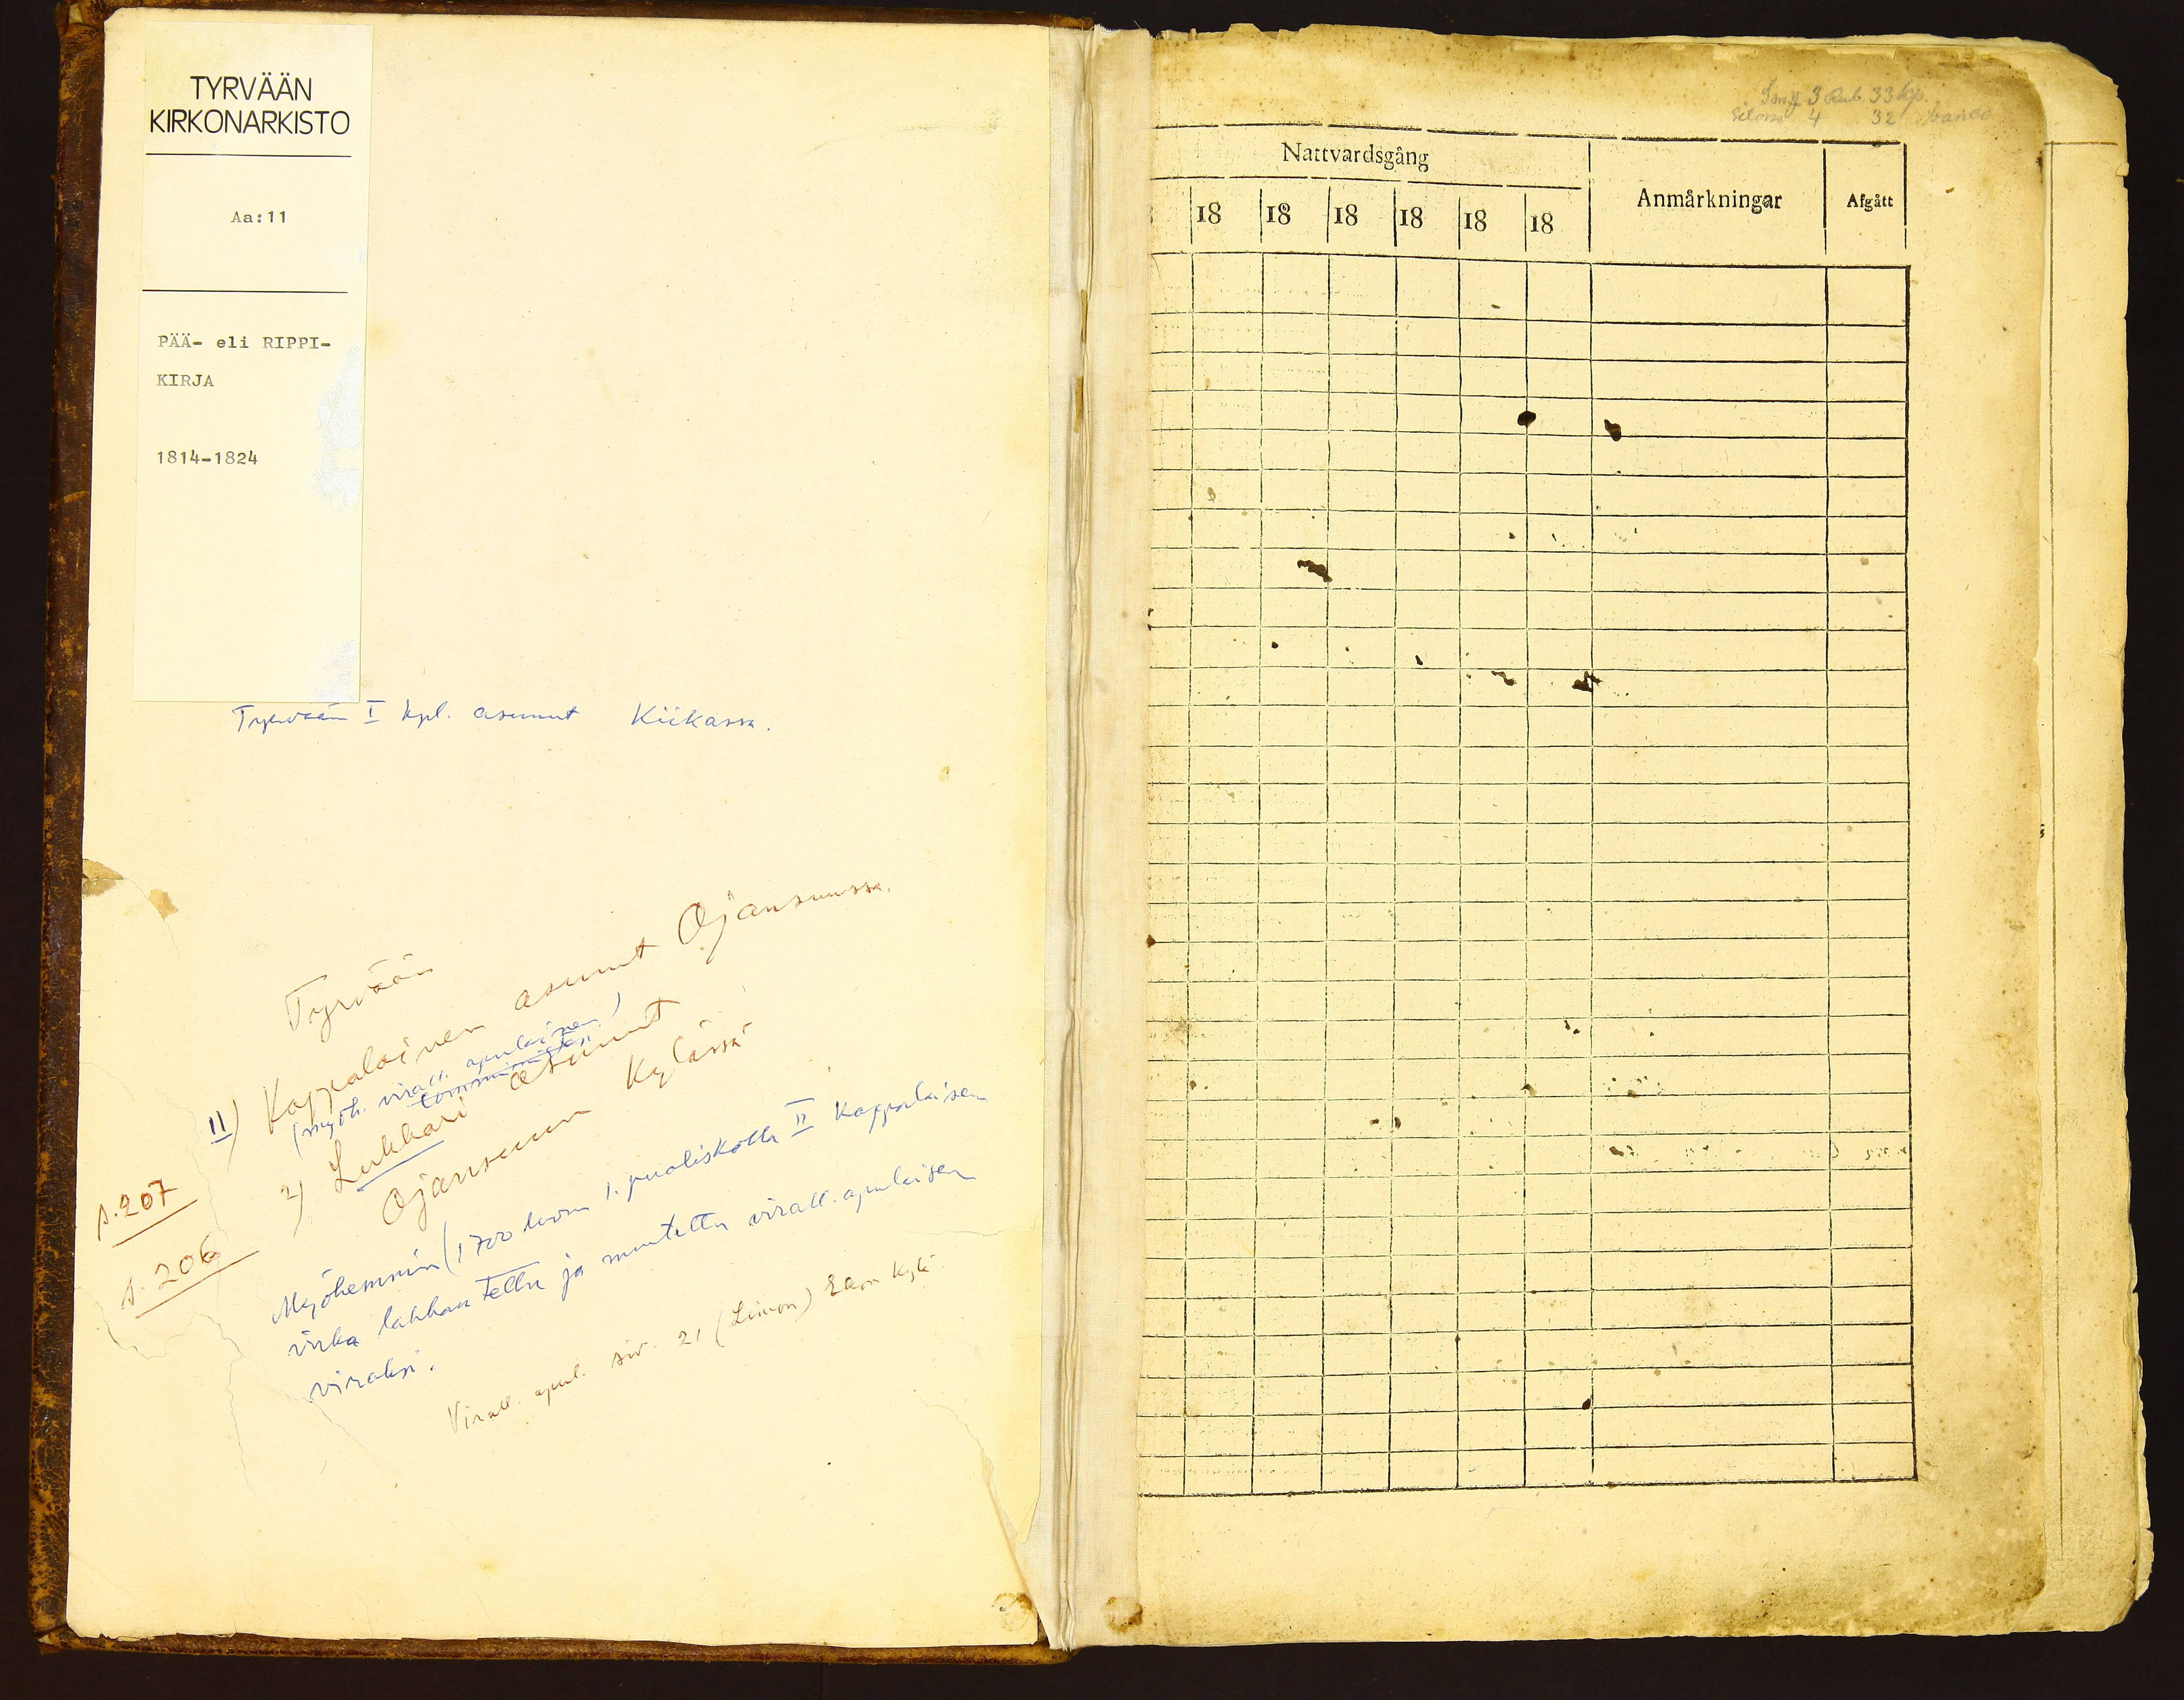 TYRVÄÄN
KIRKONARKISTO
Aa:11
PÄÄ- eli RIPPI-
KIRJA
1814-1824
Tyrvään I kpl. asunut Kiikassa.
Tyrvään
II) Kappalainen asunut Ojansuussa.
(myöh. virall. apulainen)
2) Lukkari asunut
Ojansuun kylässä
s. 207
s. 206
Myöhemmin (1700 luvun 1. puoliskolla II kappalaisen
virka lakkautettu ja muutettu virall. apulaisen
viraksi.
Virall. apul. siv. 21 (Liuon) kylä
3 Rub. 33 kp.
4 32 banco
Nattvardsgång
Anmårkningar
Afgått
18 18 18 18 18 18